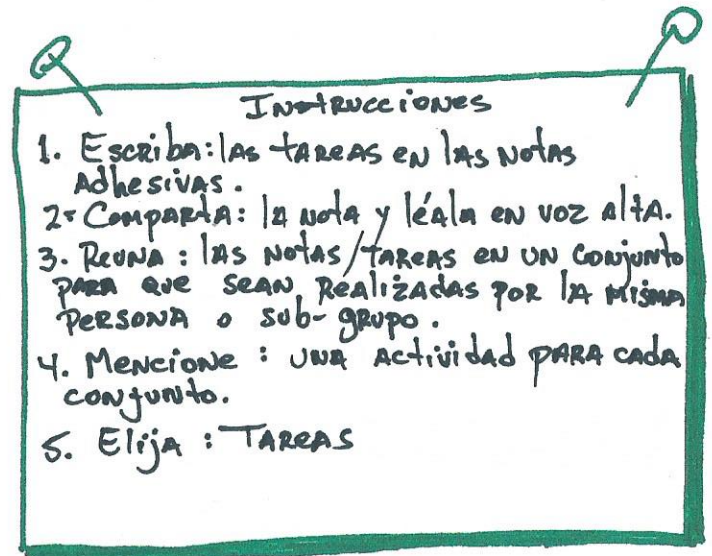 Instrucciones
1. Escriba: las tareas en las notas
Adhesivas.
2- Comparta: la nota y léala en voz alta.
3. Reuna: las notas/tareas en un conjunto
para que sean realizadas por la misma
persona o sub-grupo.
4. Mencione: una actividad para cada
conjunto.
5. Elija: Tareas